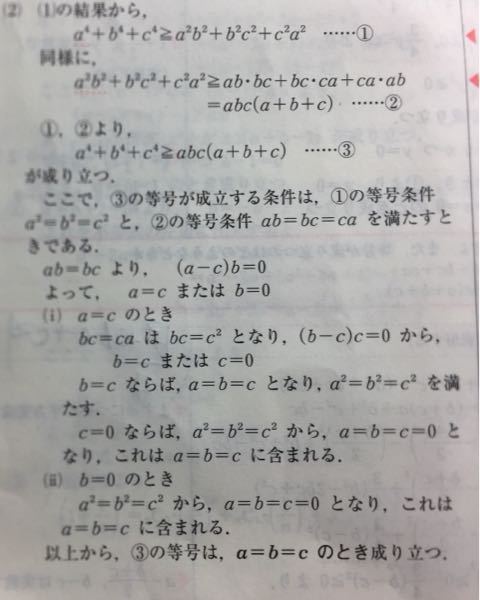 (2) (1)の結果から，
a⁴+b⁴+c⁴≧a²b²+b²c²+c²a² ……①
同様に，
a²b²+b²c²+c²a²≧ab・bc+bc・ca+ca・ab
=abc(a+b+c) ……②
①，②より，
a⁴+b⁴+c⁴≧abc(a+b+c) ……③
が成り立つ．
ここで，③の等号が成立する条件は，①の等号条件
a²=b²=c² と，②の等号条件 ab=bc=ca を満たすと
きである．
ab=bc より， (a-c)b=0
よって， a=c または b=0
(i) a=c のとき
bc=ca は bc=c² となり，(b-c)c=0 から，
b=c または c=0
b=c ならば，a=b=c となり，a²=b²=c² を満
たす．
c=0 ならば，a²=b²=c² から，a=b=c=0 と
なり，これは a=b=c に含まれる．
(ii) b=0 のとき
a²=b²=c² から，a=b=c=0 となり，これは
a=b=c に含まれる．
以上から，③の等号は，a=b=c のとき成り立つ．